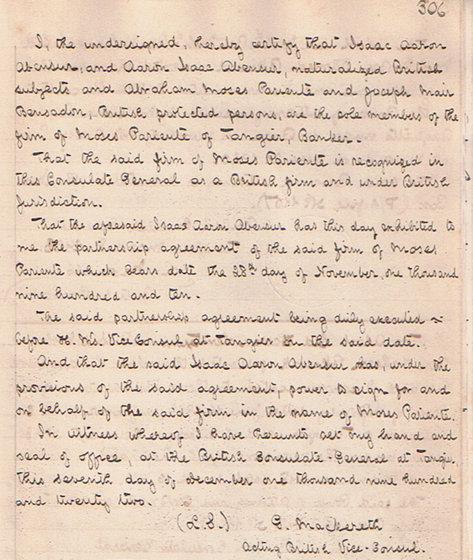 306
I, the undersigned, hereby certify that Isaac Aaron
Abensur, and Aaron Isaac Abensur, naturalized British
subjects and Abraham Moses Pariente and Joseph Mair
Bensadon, British protected persons, are the sole members of the
firm of Moses Pariente of Tangier, Banker.
That the said firm of Moses Pariente is recognized in
this Consulate General as a British firm and under British
Jurisdiction.
That the aforesaid Isaac Aaron Abensur has this day exhibited to
me the partnership agreement of the said firm of Moses
Pariente which bears date the 28th day of November, one thousand
nine hundred and ten.
The said partnership agreement being duly executed
before H. Ms. Vice Consul at Tangier on the said date.
And that the said Isaac Aaron Abensur has, under the
provisions of the said agreement, power to sign for and
on behalf of the said firm in the name of Moses Pariente.
In witness whereof I have hereunto set my hand and
seal of office, at the British Consulate General at Tangier,
this seventh day of December one thousand nine hundred
and twenty two.
(L.S.) G. Mackereth
Acting British Vice-Consul.